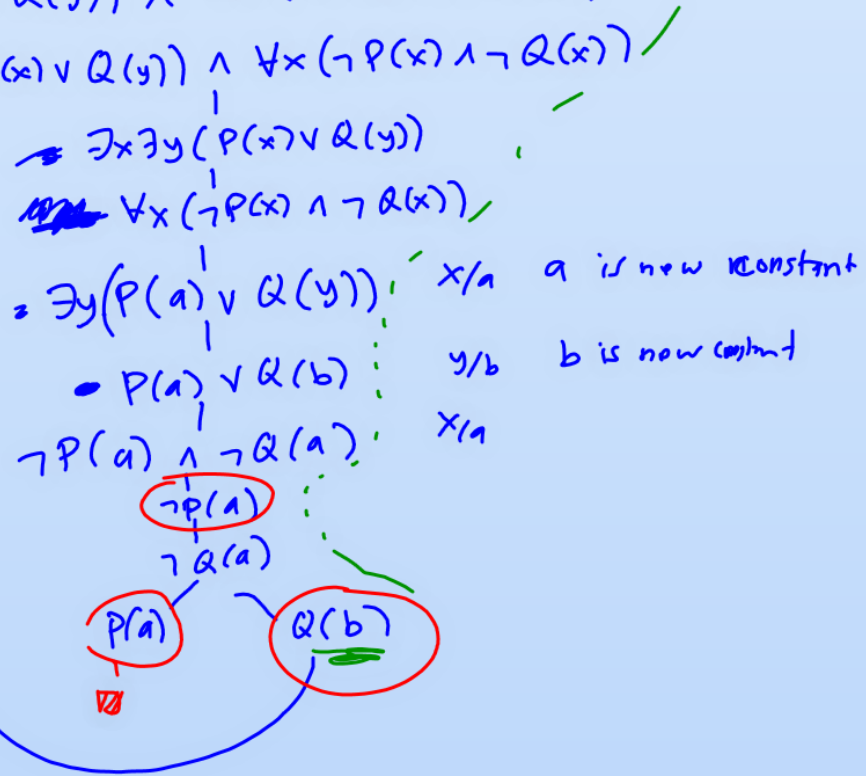 (x) ∨ Q(y)) ∧ ∀x(¬P(x) ∧ ¬Q(x))
∃x∃y(P(x) ∨ Q(y))
∀x(¬P(x) ∧ ¬Q(x))
∃y(P(a) ∨ Q(y)) x/a a is new constant
P(a) ∨ Q(b) y/b b is new constant
¬P(a) ∧ ¬Q(a) x/a
¬P(a)
¬Q(a)
P(a) Q(b)